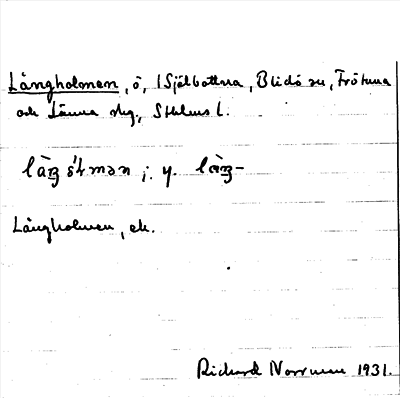 Långholmen, ö, i Själbottna, Blidö sn, Frötuna
och Länna slg., Sthlms l.
Långholmen, ek.
Richard Norrman 1931.